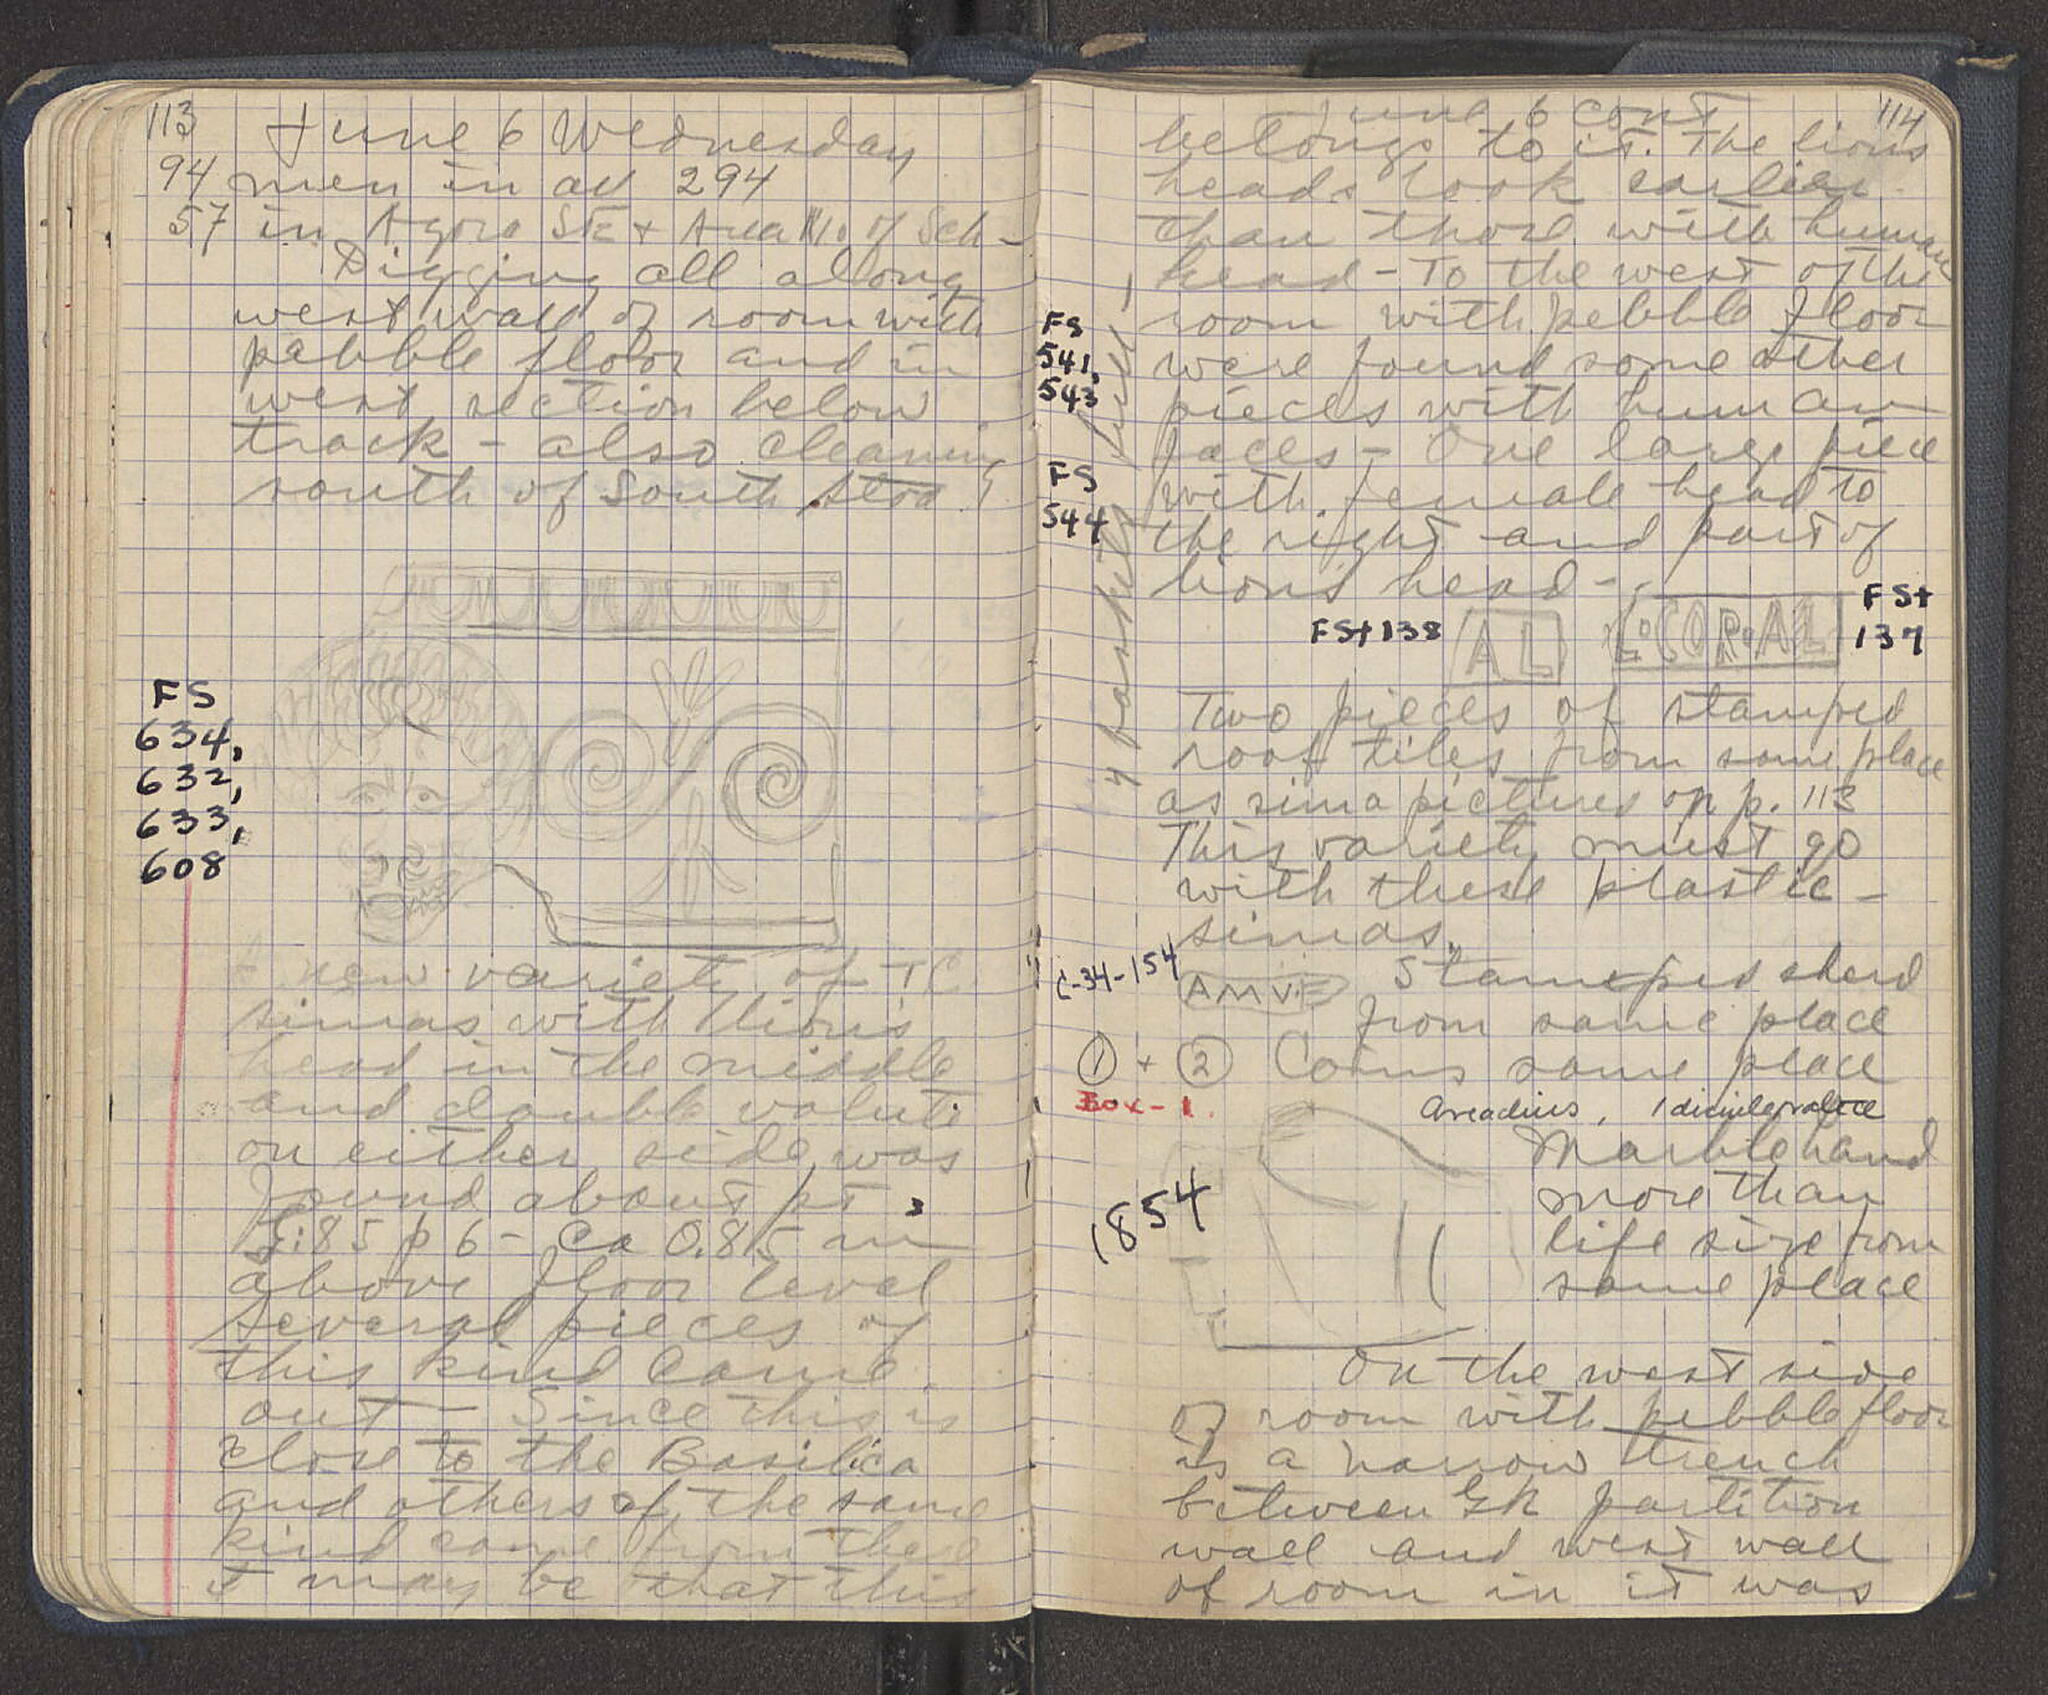 113
June 6 Wednesday
94 men in all 294
57 in Agora SE + Area N. of Sch-
Digging all along
west wall of room with
pebble floor and in
west section below
track - also cleaning
south of South Stoa
FS
634,
632,
633,
608
A new variety of TC
simas with lion's
head in the middle
and double volute
on either side was
found about pt
G:85 p 6 - Ca 0.85 m
above floor level
Several pieces of
this kind came
out - Since this is
close to the Basilica
and others of the same
kind came from there
it may be that this
114
June 6 cont
belongs to it. The lions
heads look earlier
than those with human
head - To the west of the
room with pebble floor
were found some other
pieces with human
faces - One large piece
with female head to
the right and part of
lion's head -
FS
541,
543
FS
544
4 baskets
FSt 138
AL
L·COR·AL
FSt
137
Two pieces of stamped
roof tiles from same place
as sima pictured on p. 113
This variety must go
with these plastic -
simas.
C-34-154
AMV.F
Stamped sherd
from same place
① + ② Coins same place
Box-1.
Arcadius, 1 disintegrated
1854
Marble hand
more than
life size from
same place
On the west side
of room with pebble floor
is a narrow trench
between Gk partition
wall and west wall
of room in it was